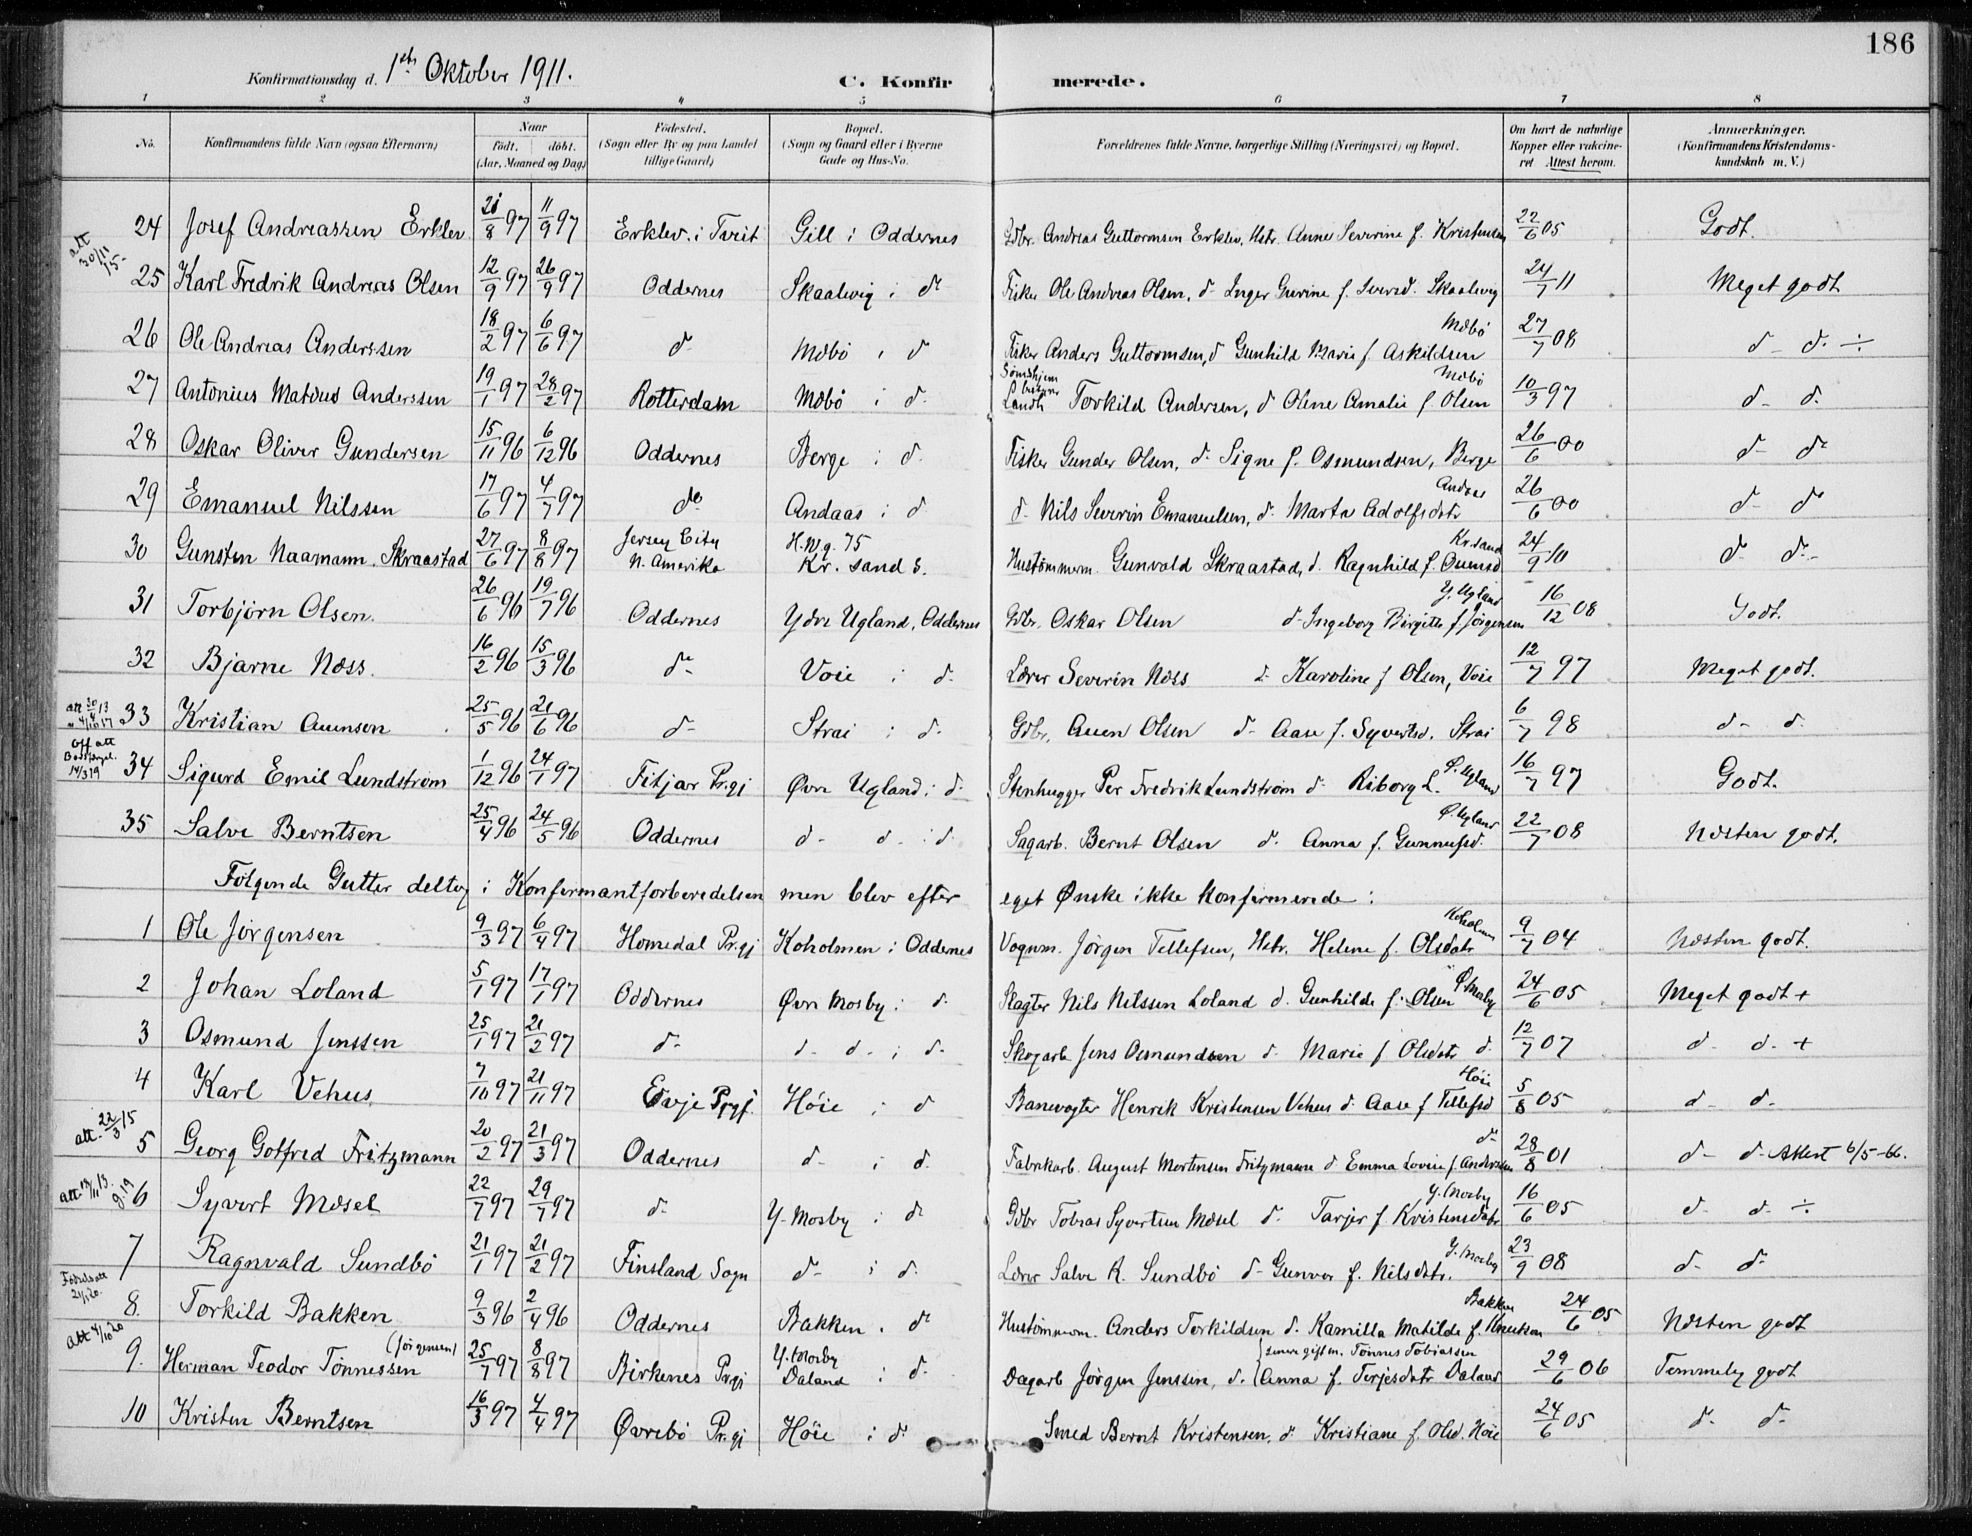 186
Konfirmationsdag d. 1ste Oktober 1911. C. Konfirmerede.
1 2 3 4 5 6 7 8
No. Konfirmandens fulde Navn (ogsaa Efternavn) Naar født. døbt. (Aar, Maaned og Dag) Fødested. (Sogn eller By og paa Landet tillige Gaard) Bopæl. (Sogn og Gaard eller i Byerne Gade og Hus-No. Forældrenes fulde Navne, borgerlige Stilling (Næringsvei) og Bopæl. Om havt de naturlige Kopper eller vakcineret. Attest herom. Anmærkninger. (Konfirmandens Kristendomskundskab m. V.)
24 Josef Andreassen Erklev 21/8 97 11/9 97 Erklev i Tveit Gill i Oddernes Gdbr. Andreas Guttormsen Erklev, Hstr. Anne Severine f. Kristensen 22/6 05 Godt.
att 30/11 15
25 Karl Fredrik Andreas Olsen 12/9 97 26/9 97 Oddernes Skaalevig i do Fisker Ole Andreas Olsen, do Inger Gurine f. Skaalevig 24/7 11 Meget godt
26 Ole Andreas Anderssen 18/2 97 6/6 97 do Mæbø i do Fisker Anders Guttormsen, do Gunhild Marie f. Askildsen Mæbø 27/7 08 do do ÷
27 Antonius Matæus Anderssen 19/1 97 28/2 97 Rotterdam Mæbø i do Torkild Andersen, do Oline Amalie f. Olsen Mæbø 10/3 97 do do
28 Oskar Oliver Gundersen 15/11 96 6/12 96 Oddernes Berge i do Fisker Gunder Olsen, do Signe f. Osmundsen, Berge 26/6 00 do do
29 Emanuel Nilssen 17/6 97 4/7 97 do Andaas i do do Nils Severin Emanuelsen, do Marta Adolfsdatr Andaas 26/6 00 do do
30 Gunsten Naamann Skraastad 27/6 97 8/8 97 Jersey City N. Amerika H.Wg. 75 Kr. sand S. Hustømmerm. Gunvald Skraastad, do Ragnhild f. Auensd Kr.sand 24/9 10 do do
31 Torbjørn Olsen. 26/6 96 19/7 96 Oddernes Ydre Ugland, Oddernes Gdbr. Oskar Olsen do Ingeborg Birgitte f. Jørgensen Y. Ugland 16/12 08 Godt.
32 Bjarne Næss. 16/2 96 15/3 96 do Voie i do Lærer Severin Næss do Karoline f Olsen, Voie 12/7 97 Meget godt.
att 30/4 13
33 Kristian Auensen 25/5 96 21/6 96 do Strai i do Gdbr. Auen Olsen do Aase f. Syvertsd. Strai 6/7 98 do do
Off att 14/3 19
34 Sigurd Emil Lundstrøm 1/12 96 24/1 97 Fitjar Pr.gj Øvre Ugland i do Stenhugger Per Fredrik Lundstrøm do Riborg L. Ø. Ugland 16/7 97 Godt.
35 Salve Berntsen 25/4 96 24/5 96 Oddernes do do i do Sagarb. Bernt Olsen do Anna f. Gunnufsd. Ø. Ugland 22/7 08 Næsten godt.
Følgende Gutter deltog i Konfirmantforberedelsen men blev efter eget Ønske ikke konfirmerede:
1 Ole Jørgensen 9/3 97 6/4 97 Homedal Pr.gj Koholmen i Oddernes Vognm. Jørgen Tellefsen, Hstr. Helene f. Olsdatr Koholmen 9/7 04 Næsten godt.
2 Johan Loland 5/1 97 17/1 97 Oddernes Øvre Mosby i do Slagter Nils Nilssen Loland do Gunhilde f. Olsen Ø. Mosby 24/6 05 Meget godt +
3 Osmund Jenssen 25/1 97 21/2 97 do do do i do Skogarb Jens Osmundsen do Marie f Olsdatr do 12/7 07 do do +
4 Karl Vehus 7/10 97 21/11 97 Evje Prgj. Høie i do Banevogter Henrik Kristensen Vehus do Aase f Tellefsd Høie 5/8 05 do do
att. 22/3 15
5 Georg Gotfred Fritzmann 20/2 97 21/3 97 Oddernes do i do Fabrikarb. August Mortensen Fritzmann do Emma Lovise f. Andersen do 28/8 01 do do Attest 6/5-66.
6 Syvert Mæsel 22/7 97 29/7 97 do Y. Mosby i do Gdbr Tobias Syvertsen Mæsel do Tarjer f. Kristensdatr Y. Mosby 16/6 05 do do ÷
7 Ragnvald Sundbø 21/1 97 21/2 97 Finsland Sogn do i do Lærer Salve K. Sundbø do Gunvor f. Nilsdatr. Y. Mosby 23/9 08 do do
8. Torkild Bakken 9/3 96 2/4 96 Oddernes Bakken i do Hustømmerm. Anders Torkildsen do Kamilla Matilde f. Knutsen Bakken 24/6 05 Næsten godt
Att 4/10 20
9. Herman Teodor Tønnessen (Jørgensen) 25/7 97 8/8 97 Birkenes Pr.gj Y. Mosby Daland i do Dagarb Jørgen Jenssen, do Anna f. Terjesdatr Daland (senere gift m. Tønnes Tobiassen 29/6 06 Temmelig godt
10 Kristen Berntsen 16/3 97 4/4 97 Øvrebø Pr.gj Høie i do Smed Bernt Kristensen, do Kristiane f. Olsd. Høie 24/6 05 do do